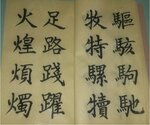 驅駭駒馳
牧特犢
足路踐躍
火煌煩燭